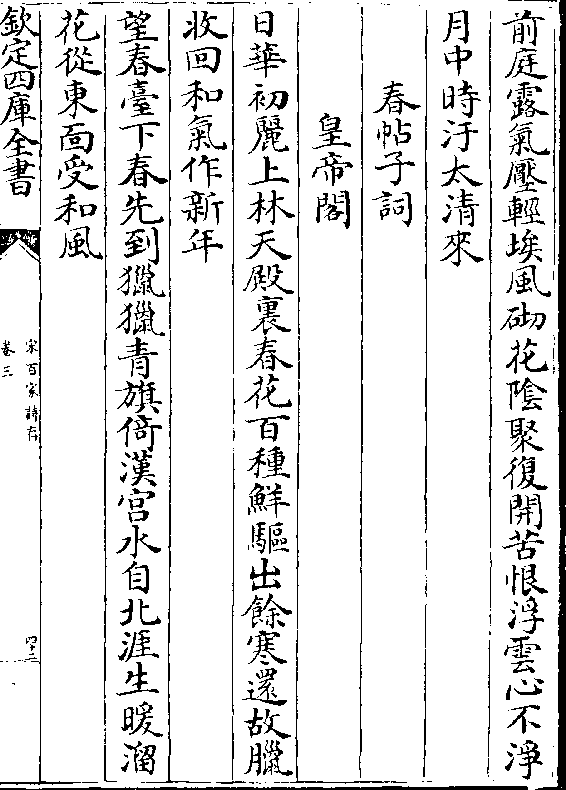 前庭露氣壓輕埃風砌花陰聚復開苦恨浮雲心不淨
月中時汙太清來
春帖子詞
皇帝閣
日華初麗上林天殿裏春花百種鮮驅出餘寒還故臘
收回和氣作新年
望春臺下春先到獵獵青旗倚漢宮水自北涯生暖溜
花從東面受和風
欽定四庫全書
宋百家詩存
卷三
四十二